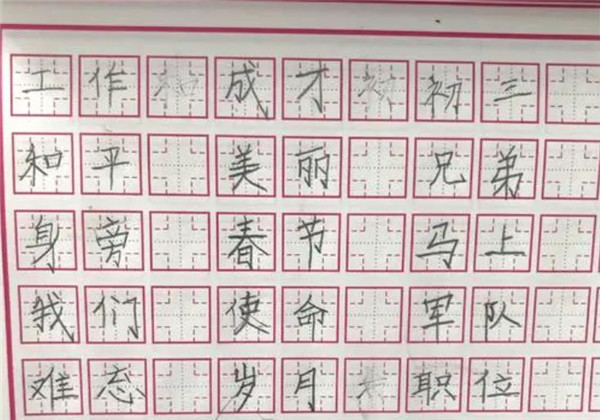 工作 成才 初三
和平 美丽 兄弟
身旁 春节 马上
我们 使命 军队
难忘 岁月 职位